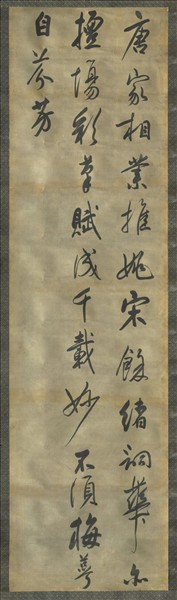 唐家相業推姚宋餘緒詞華亦
擅場彩筆賦成千載妙不須梅萼
自芬芳